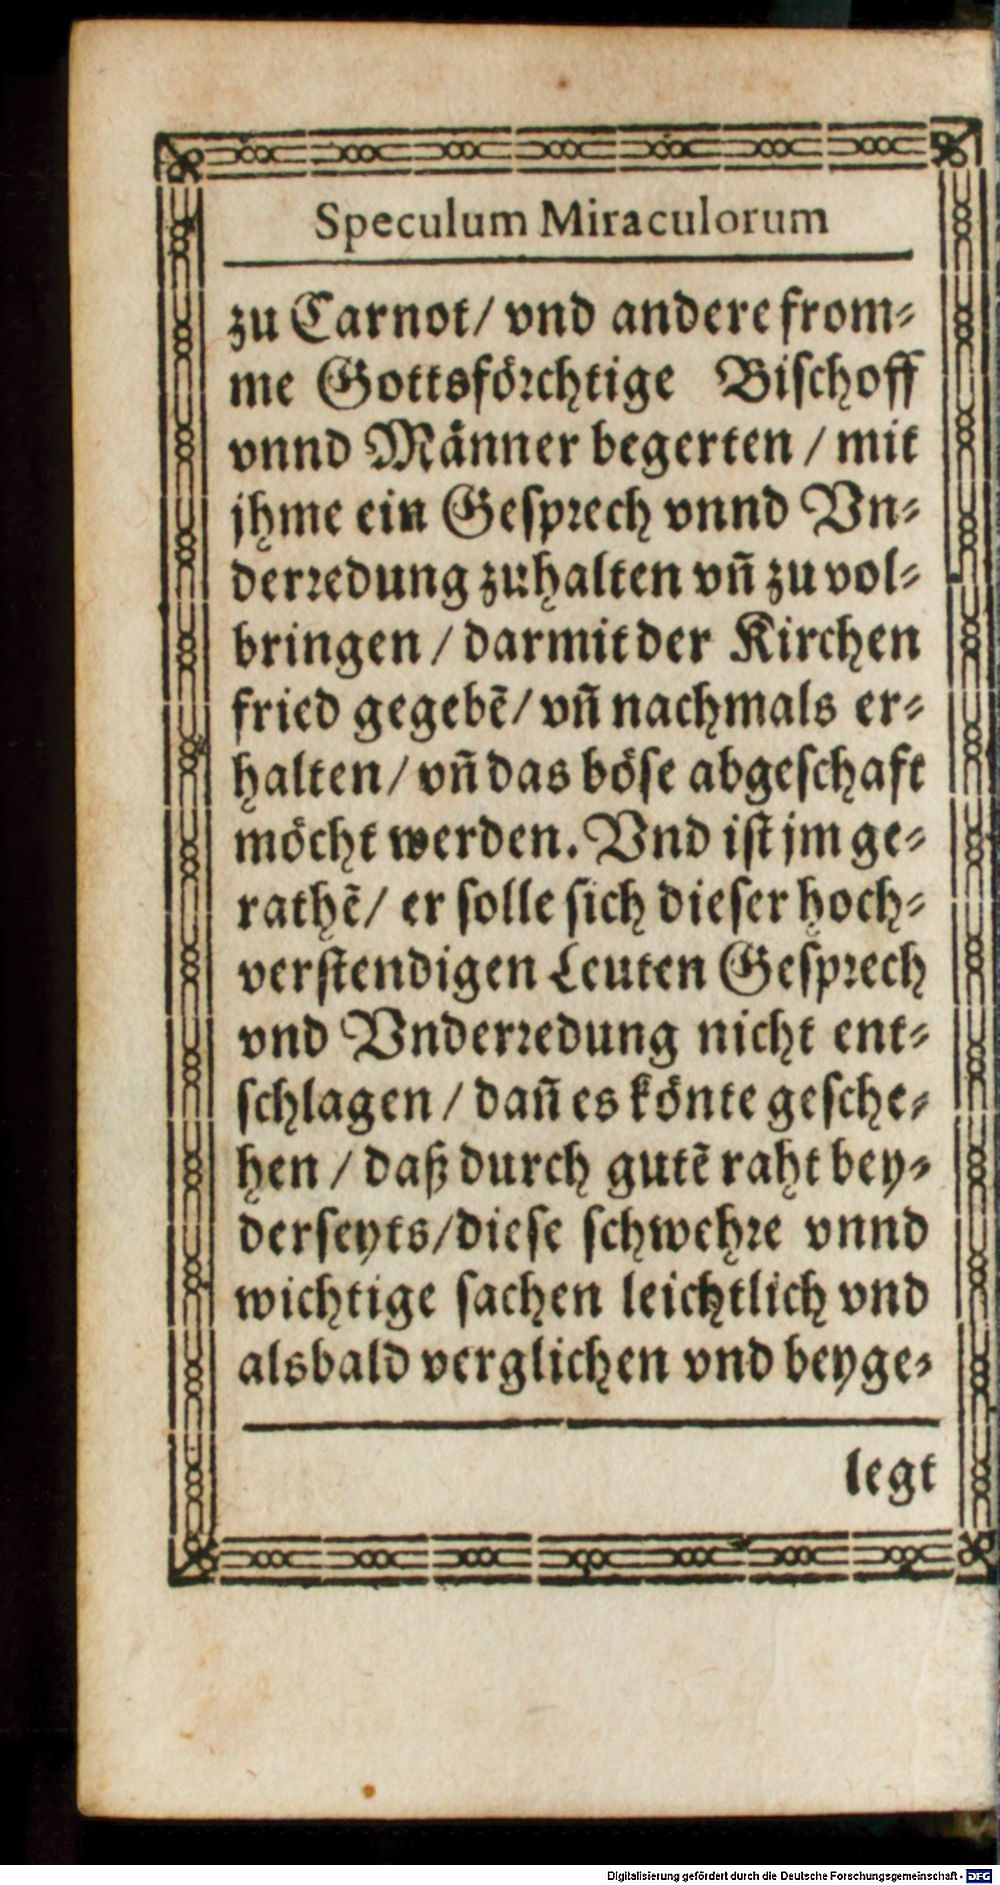 Speculum Miraculorum
zu Carnot/ vnd andere from⸗
me Gottsförchtige Bischoff
vnnd Männer begerten / mit
jhme ein Gesprech vnnd Vn⸗
derredung zuhalten vn̄ zu vol⸗
bringen / darmit der Kirchen
fried gegebē/ vn̄ nachmals er⸗
halten/ vn̄ das böse abgeschaft
möcht werden. Vnd ist jm ge⸗
rathē/ er solle sich dieser hoch⸗
verstendigen Leuten Gesprech
vnd Vnderredung nicht ent⸗
schlagen / dan̄ es könte gesche⸗
hen / daß durch gutē raht bey⸗
derseyts/diese schwehre vnnd
wichtige sachen leichtlich vnd
alsbald verglichen vnd beyge⸗
legt
Digitalisierung gefördert durch die Deutsche Forschungsgemeinschaft - DFG